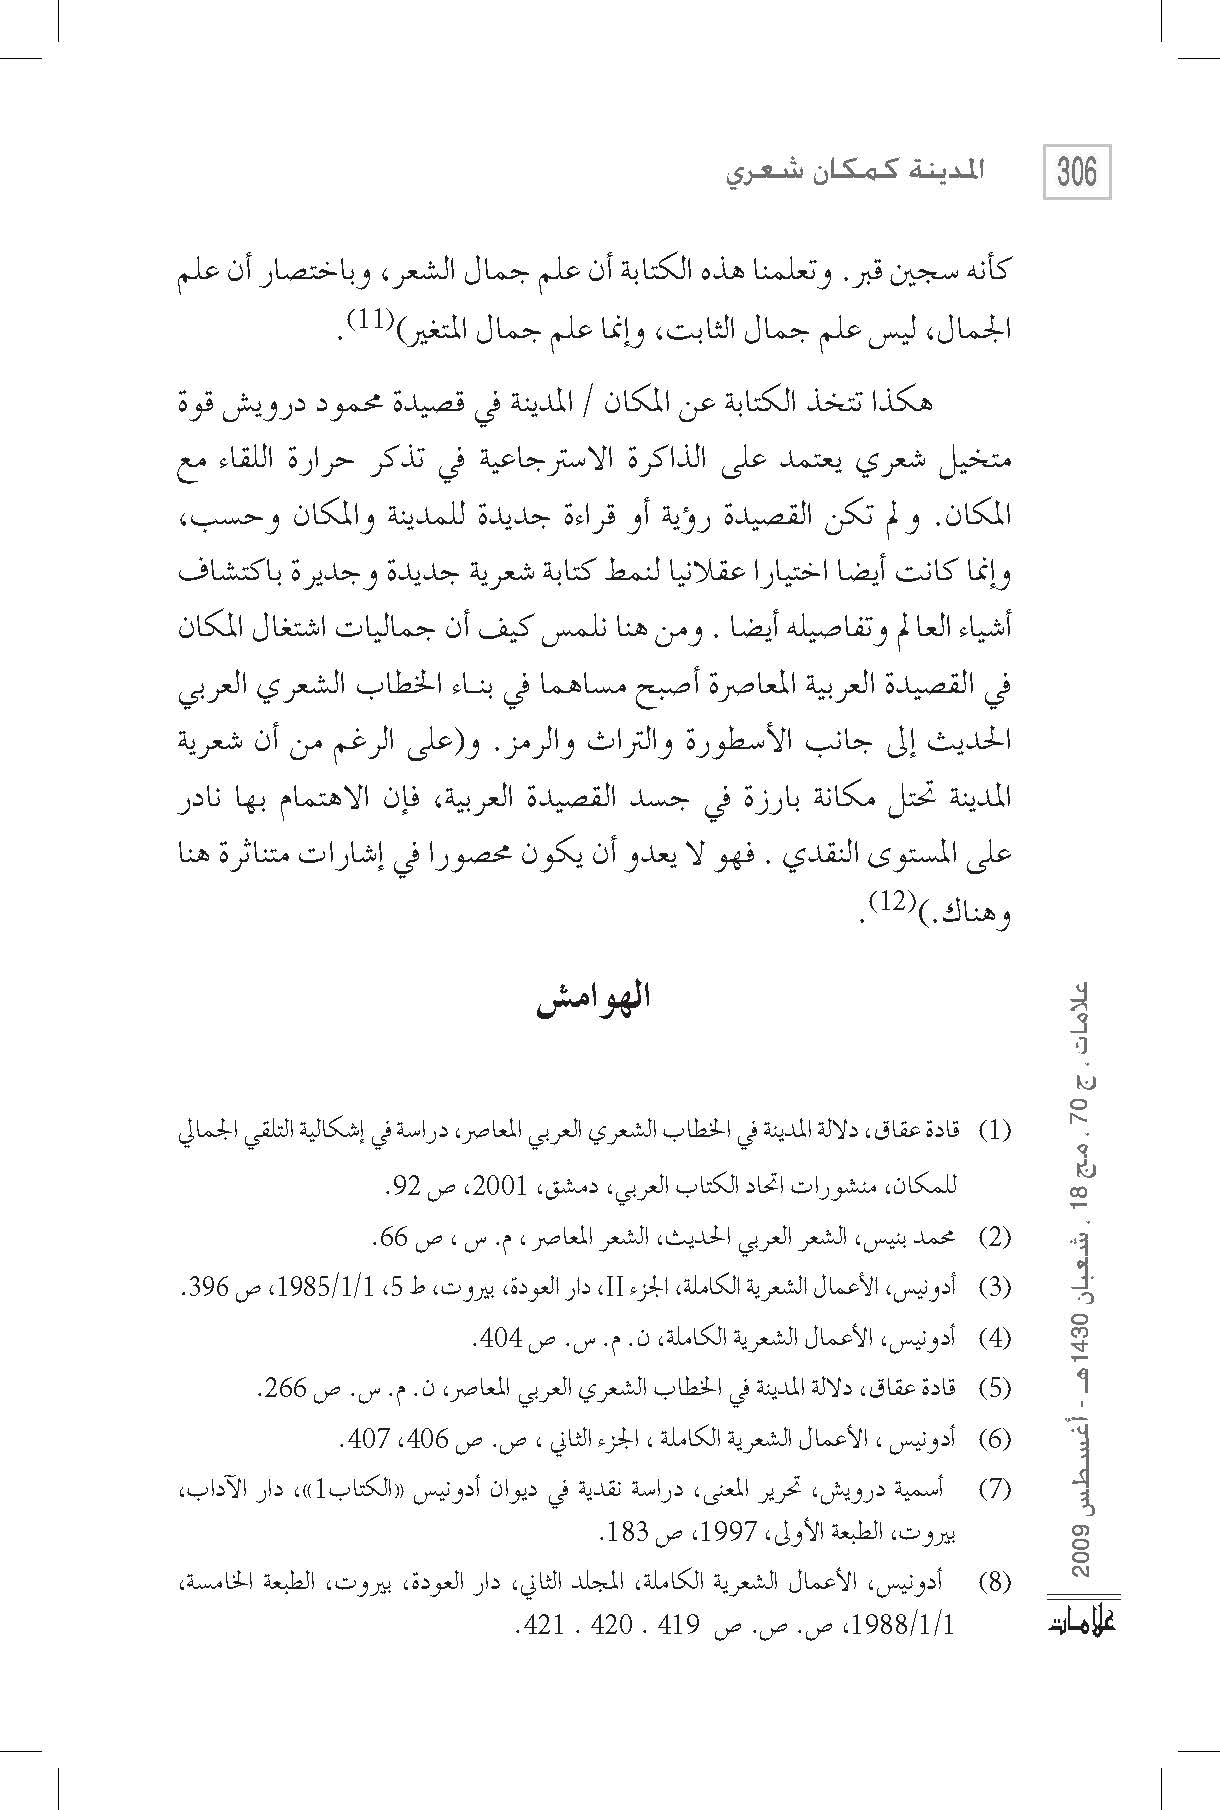 306
المدينة كمكان شعري
كأنه سجين قبر. وتعلمنا هذه الكتابة أن علم جمال الشعر، وباختصار أن علم
الجمال، ليس علم جمال الثابت، وإنما علم جمال المتغير)(11).
هكذا تتخذ الكتابة عن المكان / المدينة في قصيدة محمود درويش قوة
متخيل شعري يعتمد على الذاكرة الاسترجاعية في تذكر حرارة اللقاء مع
المكان. و لم تكن القصيدة رؤية أو قراءة جديدة للمدينة والمكان وحسب،
وإنما كانت أيضا اختيارا عقلانيا لنمط كتابة شعرية جديدة وجديرة باكتشاف
أشياء العا لم وتفاصيله أيضا . ومن هنا نلمس كيف أن جماليات اشتغال المكان
في القصيدة العربية المعاصرة أصبح مساهما في بناء الخطاب الشعري العربي
الحديث إلى جانب الأسطورة والتراث والرمز. و(على الرغم من أن شعرية
المدينة تحتل مكانة بارزة في جسد القصيدة العربية، فإن الاهتمام بها نادر
على المستوى النقدي . فهو لا يعدو أن يكون محصورا في إشارات متناثرة هنا
وهناك.)(12).
الهوامش
(1) قادة عقاق، دلالة المدينة في الخطاب الشعري العربي المعاصر، دراسة في إشكالية التلقي الجمالي
للمكان، منشورات اتحاد الكتاب العربي، دمشق، 2001، ص 92.
(2) محمد بنيس، الشعر العربي الحديث، الشعر المعاصر ، م. س ، ص 66.
(3) أدونيس، الأعمال الشعرية الكاملة، الجزء II، دار العودة، بيروت، ط 5، 1985/1/1، ص 396.
(4) أدونيس، الأعمال الشعرية الكاملة، ن. م. س. ص 404.
(5) قادة عقاق، دلالة المدينة في الخطاب الشعري العربي المعاصر، ن. م. س. ص 266.
(6) أدونيس ، الأعمال الشعرية الكاملة ، الجزء الثاني ، ص. ص 406، 407.
(7) أسمية درويش، تحرير المعنى، دراسة نقدية في ديوان أدونيس «الكتاب1»، دار الآداب،
بيروت، الطبعة الأولى، 1997، ص 183.
(8) أدونيس، الأعمال الشعرية الكاملة، المجلد الثاني، دار العودة، بيروت، الطبعة الخامسة،
1988/1/1، ص. ص. ص 419 . 420 . 421.
علامات . ج 70 . مج 18 . شعبان 1430هـ - أغسطس 2009
علامات